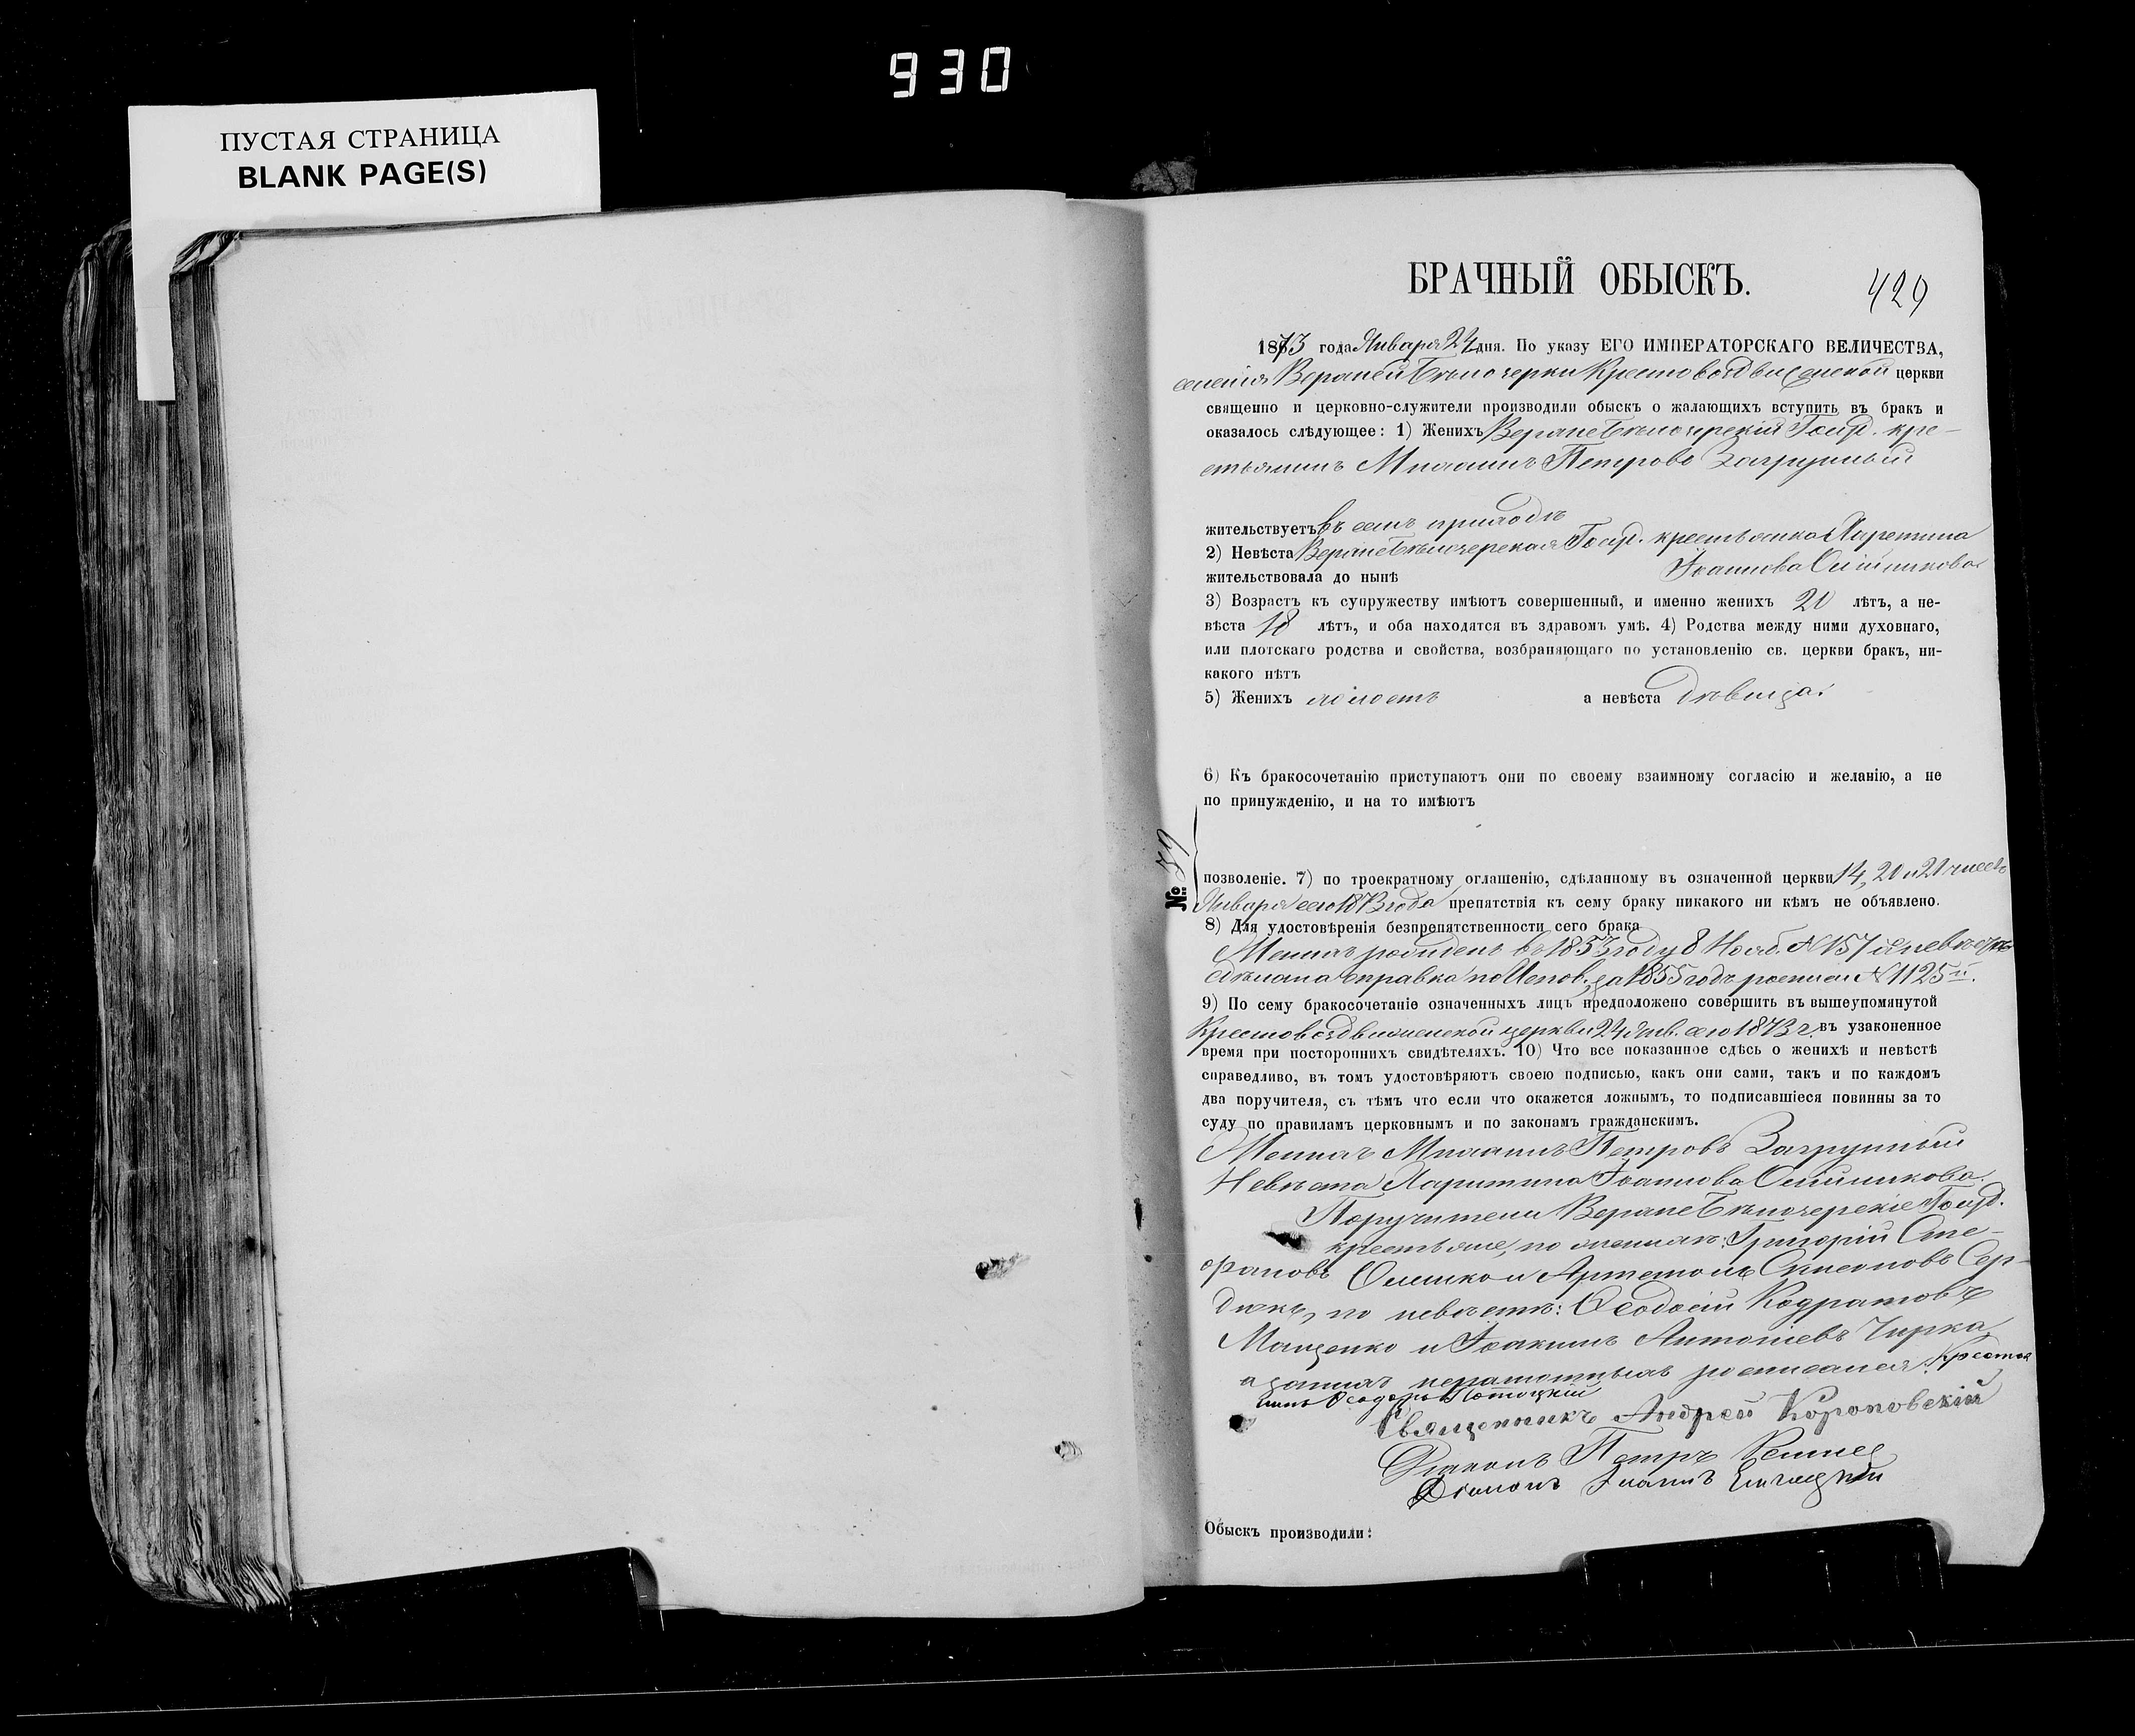 930
ПУСТАЯ СТРАНИЦА
BLANK PAGE(S)
БРАЧНЫЙ ОБЫСКЪ.
429
1873 года Января 24 дня. По указу ЕГО ИМПЕРАТОРСКАГО ВЕЛИЧЕСТВА,
селенія Верхней Бѣлозерки Крестовоздвиженской церкви
священно и церковно-служители производили обыскъ о жалающихъ вступить въ бракъ и
оказалось слѣдующее: 1) Женихъ ВерхнеБѣлозерскій Госуд. кре-
стьянинъ Михаилъ Петровъ Загрушный
жительствуетъ въ семъ приходѣ
2) Невѣста ВерхнеБѣлозерская Госуд. крестьянка Харитина
Іоаннова
жительствовала до нынѣ
3) Возрастъ къ супружеству имѣютъ совершенный, и именно женихъ 20 лѣтъ, а не-
вѣста 18 лѣтъ, и оба находятся въ здравомъ умѣ. 4) Родства между ними духовнаго,
или плотскаго родства и свойства, возбраняющаго по установленію св. церкви бракъ, ни-
какого нѣтъ
5) Женихъ холостъ а невѣста дѣвица.
6) Къ бракосочетанію приступаютъ они по своему взаимному согласію и желанію, а не
по принужденію, и на то имѣютъ
№
позволеніе. 7) по троекратному оглашенію, сдѣланному въ означенной церкви 14, 20 и 21 чиселъ
Января сего 1873 года препятствія къ сему браку никакого ни кѣмъ не объявлено.
8) Для удостовѣренія безпрепятственности сего брака
Женихъ рожденъ въ 1853 году 8 Нояб. № 157 а о невѣстѣ
сдѣлана справка по Испов. за 1855 годъ росписи № 1125й.
9) По сему бракосочетаніе означенныхъ лицъ предположено совершить въ вышеупомянутой
Крестовоздвиженской церкви 24 Янв. сего 1873 г. въ узаконенное
время при постороннихъ свидѣтеляхъ. 10) Что все показанное сдѣсь о женихѣ и невѣстѣ
справедливо, въ томъ удостовѣряютъ своею подписью, какъ они сами, такъ и по каждомъ
два поручителя, съ тѣмъ что если что окажется ложнымъ, то подписавшіеся повинны за то
суду по правиламъ церковнымъ и по законамъ гражданскимъ.
Женихъ Михаилъ Петровъ Загрушный
Невѣста Харитина Іоаннова
Поручители ВерхнеБѣлозерскіе Госуд.
крестьяне, по женихѣ: Григорій Сте-
фановъ и Артемонъ Симеоновъ Сер-
дюкъ, по невѣстѣ: Ѳеодосій Кодратовъ
Мащенко и Іоакимъ Антоніевъ Чирка
а за нихъ неграмотныхъ росписался Крестья
нинъ Ѳеодоръ Потоцкій
Священникъ Андрей Короповскій
Діаконъ Петръ
Діаконъ Іоаннъ
Обыскъ производили: